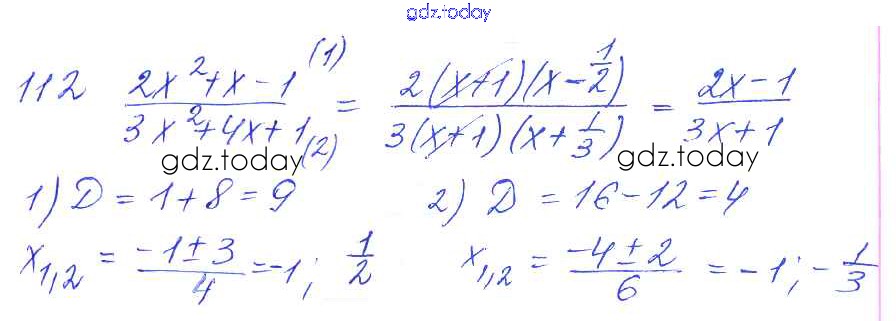 gdz.today
112 (2x²+x-1 (1))/(3x²+4x+1 (2)) = (2(x+1)(x-1/2))/(3(x+1)(x+1/3)) = (2x-1)/(3x+1)
gdz.today gdz.today
1) D = 1+8=9 2) D = 16-12=4
x₁,₂ = (-1±3)/4 = -1; 1/2 x₁,₂ = (-4±2)/6 = -1; -1/3